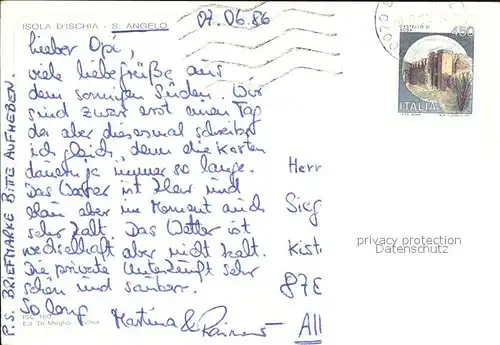 ISOLA D'ISCHIA - S. ANGELO
07.06.86
Lieber Opi,
viele liebe Grüße aus
dem sonnigen Süden. Wir
sind zwar erst einen Tag
da aber diesesmal schreibe
ich gleich, denn die Karten
dauern ja immer so lange.
Das Wasser ist klar und
blau aber im Moment auch
sehr kalt. Das Wetter ist
wechselhaft aber nicht kalt.
Die private Unterkunft sehr
schön und sauber.
So long
Martina & Rainer
P.S. BRIEFMARKE BITTE AUFHEBEN.
ISC 169
Ed. Di Meglio - Ischia
450
ITALIA
Herr
Sieg
Kist
87E
All
privacy protection
Datenschutz